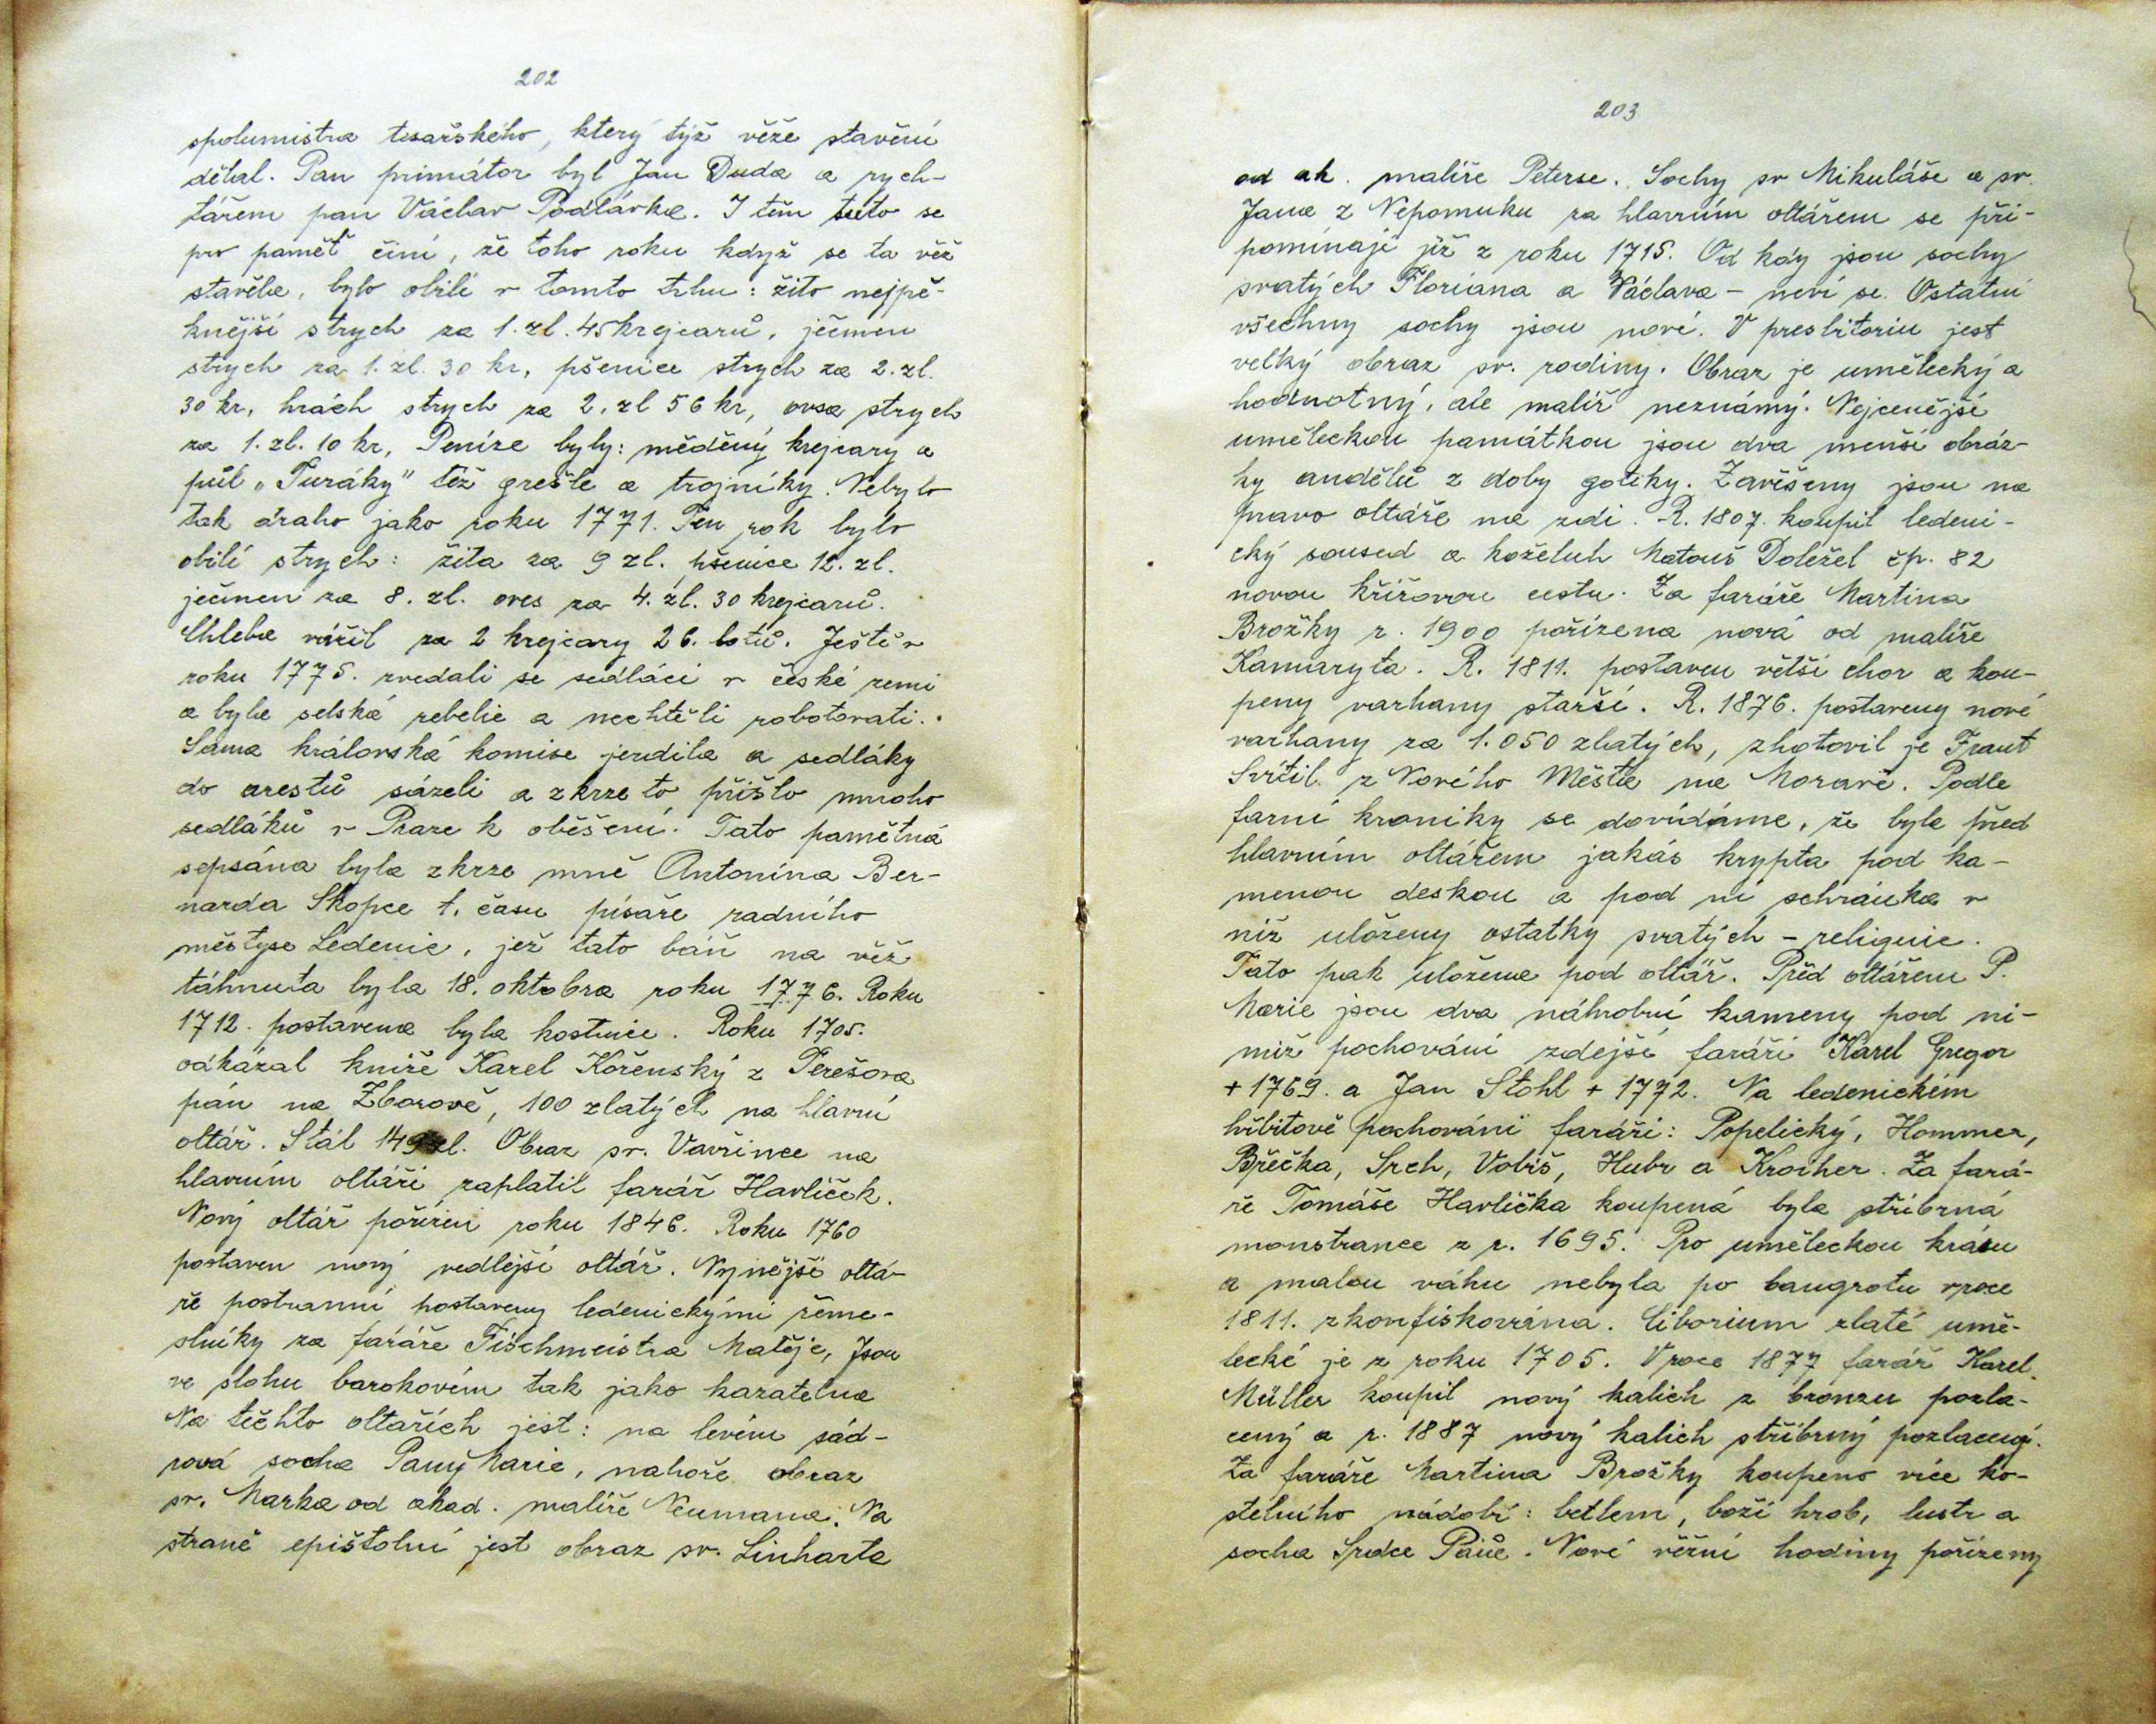 202
spolumistra tesařského, který týž věže stavění
dělal. Pan primátor byl Jan Duda a rych-
tářem pan Václav Podlávka. I tím tuto se
pro paměť činí, že toho roku když se ta věž
stavěla, bylo obilí v tomto trhu: žito nejpě-
knější strych za 1. zl. 45 krejcarů, ječmen
strych za 1. zl. 30 kr, pšenice strych za 2. zl.
30 kr, hrách strych za 2. zl 56 kr, ovsa strych
za 1. zl. 10 kr, Peníze byly: měděný krejcary a
půl „Turáky" též grešle a trojníky. Nebylo
tak draho jako roku 1771. Ten rok bylo
obilí strych: žita za 9 zl. pšenice 12. zl.
ječmen za 8. zl. oves za 4. zl. 30 krejcarů.
Chleba vážil za 2 krejcary 26. lotů. Ještě v
roku 1775. zvedali se sedláci v české zemi
a byla selská rebelie a nechtěli robotovati.
Sama královská komise jezdila a sedláky
do arestů sázeli a zkrze to přišlo mnoho
sedláků v Praze k oběšení. Tato pamětná
sepsána byla zkrze mně Antonína Ber-
narda Skopce t. času písaře radního
městyse Ledenic, jež tato báň na věž
táhnuta byla 18. oktobra roku 1776. Roku
1712. postavena byla kostnice. Roku 1705.
odkázal kníže Karel Kořenský z Terešova
pán na Zborově, 100 zlatých na hlavní
oltář. Stál 149 zl. Obraz sv. Vavřince na
hlavním oltáři zaplatil farář Havlíček.
Nový oltář pořízen roku 1846. Roku 1760
postaven nový vedlejší oltář. Nynější oltá-
ře postranní postaveny ledenickými řeme-
slníky za faráře Fischmeistra Matěje, Jsou
ve slohu barokovém tak jako kazatelna
Na těchto oltářích jest: na levém sád-
rová socha Panny Marie, nahoře obraz
sv. Marka od akad. malíře Neumana. Na
straně epištolní jest obraz sv. Linharta
203
od ak. malíře Peterse. Sochy sv Mikuláše a sv.
Jana z Nepomuku za hlavním oltářem se při-
pomínají již z roku 1715. Od kdy jsou sochy
svatých Floriana a Václava - neví se. Ostatní
všechny sochy jsou nové. V presbitoriu jest
velký obraz sv. rodiny. Obraz je umělecký a
hodnotný, ale malíř neznámý. Nejcenější
uměleckou památkou jsou dva menší obráz-
ky andělů z doby gotiky. Zavěšeny jsou na
pravo oltáře na zdi. R. 1807. koupil ledeni-
cký soused a koželuh Matouš Doležel čp. 82
novou křížovou cestu. Za faráře Martina
Brožky r. 1900 pořízena nová od malíře
Kamaryta. R. 1811. postaven větší chor a kou-
peny varhany starší. R. 1876. postaveny nové
varhany za 1.050 zlatých, zhotovil je Frant
Svítil z Nového Města na Moravě. Podle
farní kroniky se dovídáme, že byla před
hlavním oltářem jakás krypta pod ka-
menou deskou a pod ní schránka v
níž uloženy ostatky svatých - reliquie.
Tato pak uložena pod oltář. Před oltářem P.
Marie jsou dva náhrobní kameny pod ni-
miž pochováni zdejší faráři Karel Gregor
+ 1769. a Jan Stohl + 1772. Na ledenickém
hřbitově pochováni faráři: Popelický, Hommer,
Břečka, Srch, Vobiš, Hubr a Krocher. Za fará-
ře Tomáše Havlíčka koupená byla stříbrná
monstrance z r. 1695. Pro uměleckou krásu
a malou váhu nebyla po bangrotu v roce
1811. zkonfiskována. Ciborium zlaté umě-
lecké je z roku 1705. V roce 1877 farář Karel
Müller koupil nový kalich z bronzu pozla-
cený a r. 1887 nový kalich stříbrný pozlacený.
Za faráře Martina Brožky koupeno více ko-
stelního nádobí: betlem, boží hrob, lustr a
socha Srdce Páně. Nové věžní hodiny pořízeny